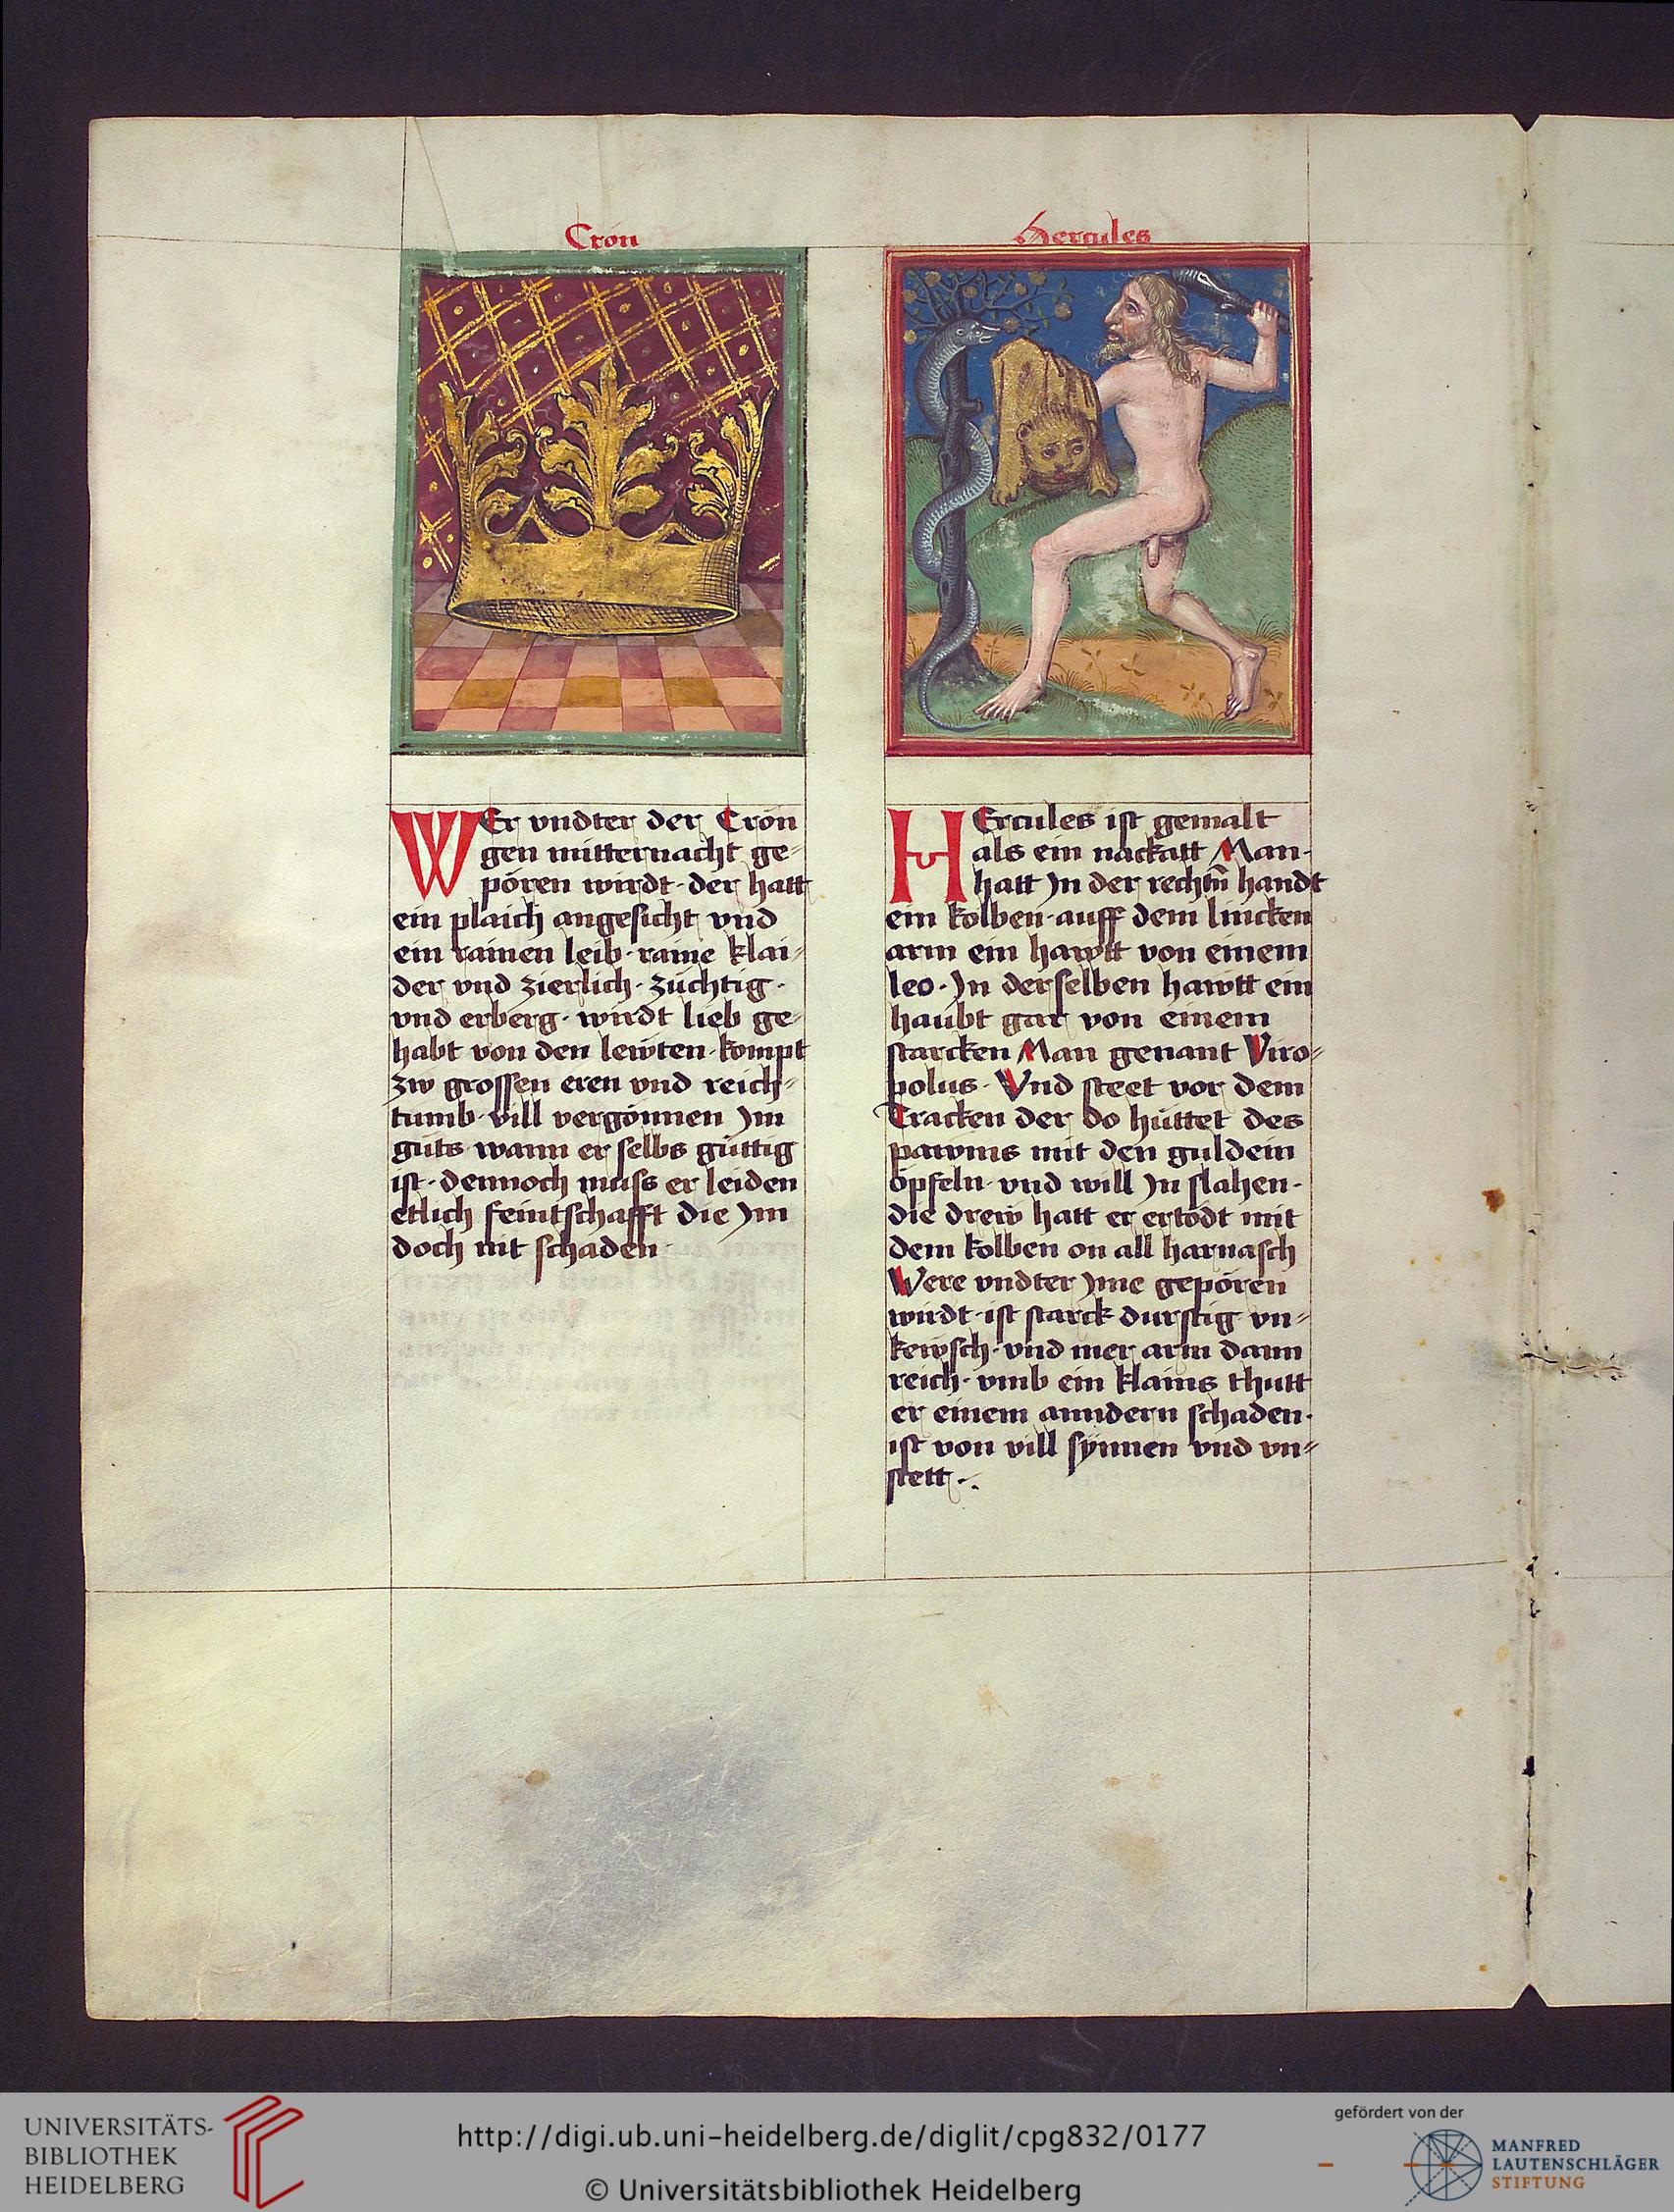 Cron
WEr vndter der Cron
gen mitternacht ge-
pören wirdt · der hatt
ein plaich angesicht vnd
ein rainen leib · raine klai-
der vnd zierlich · züchtig ·
vnd erberg · wirdt lieb ge-
habt von den lewten · kompt
zw grossen eren vnd reich-
tumb · vill vergönnen Jm
guts · wann er selbs güttig
ist · dennoch muss er leiden
etlich feintschafft die Jm
doch nit schaden ·
Hercules
HErcules ist gemalt
als ein nackatt Man ·
hatt Jn der rechtñ handt
ein kolben · auff dem lincken
arm ein hawtt von einem
leo · Jn derselben hawtt ein
haubt gar von einem
starcken Man genant Viro-
polus · Vnd steet vor dem
Tracken der do hüttet des
pawms mit den guldein
öpfeln · vnd will Jn slahen ·
die drew hatt er ertödt mit
dem kolben on all harnasch
Were vndter Jme gepören
wirdt · ist starck durstig vn-
kewsch · vnd mer arm dann
reich · vmb ein klains thutt
er einem anndern schaden ·
ist von vill synnen vnd vn-
stett ·
UNIVERSITÄTS-
BIBLIOTHEK
HEIDELBERG
http://digi.ub.uni-heidelberg.de/diglit/cpg832/0177
© Universitätsbibliothek Heidelberg
gefördert von der
MANFRED
LAUTENSCHLÄGER
STIFTUNG